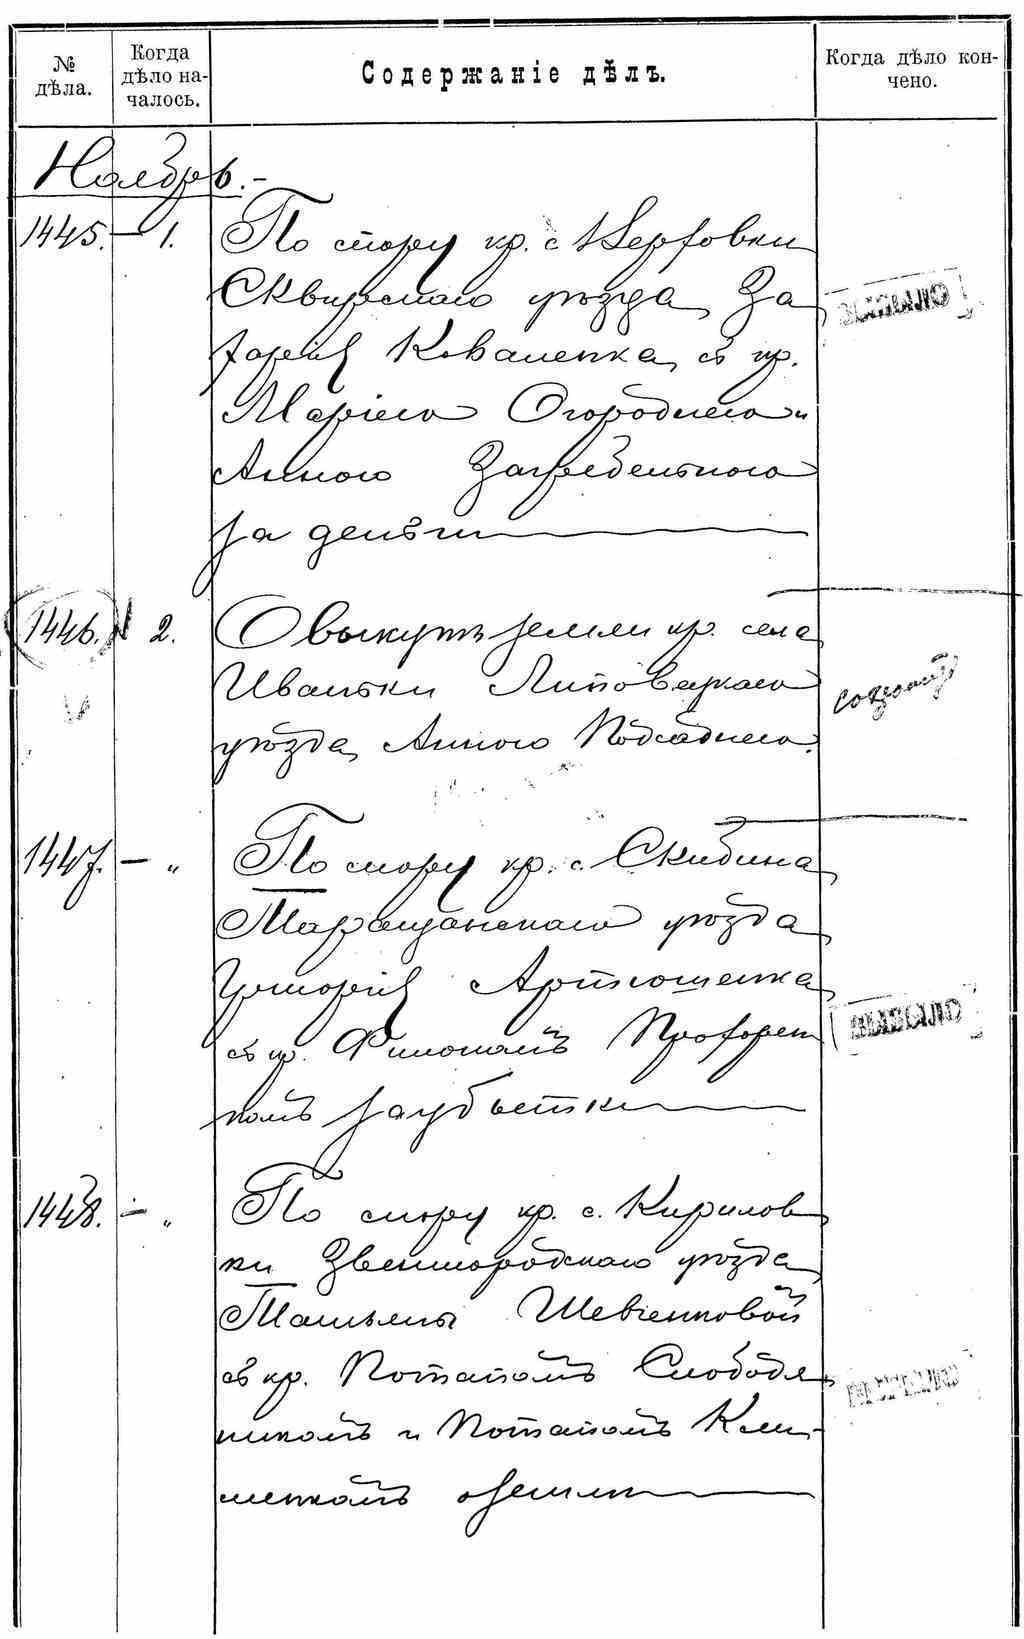 № дѣла.
Когда дѣло на-
чалось.
Содержаніе дѣлъ.
Когда дѣло кон-
чено.
Ноябрь.-
1445. – 1. По спору кр. с.
Сквирскаго уѣзда, За
харія Коваленка, съ кр.
Маріею Огороднею и
Анною Загребельною
за деньги
1446. 2. О выкупѣ земли кр. села
Иваньки Липовецкаго
уѣзда, Анною Подсаднею.
1447. – „ По спору кр. с. Скибина
Таращанскаго уѣзда
Григорія Артюшенка
съ кр. Филономъ Прохорен
комъ за убытки
1448. – „ По спору кр. с. Кирилов
ки Звенигородскаго уѣзда
Татьяны Шевченковой
съ кр. Потапомъ Слободя
никомъ и Потапомъ Кли-
менкомъ о землѣ